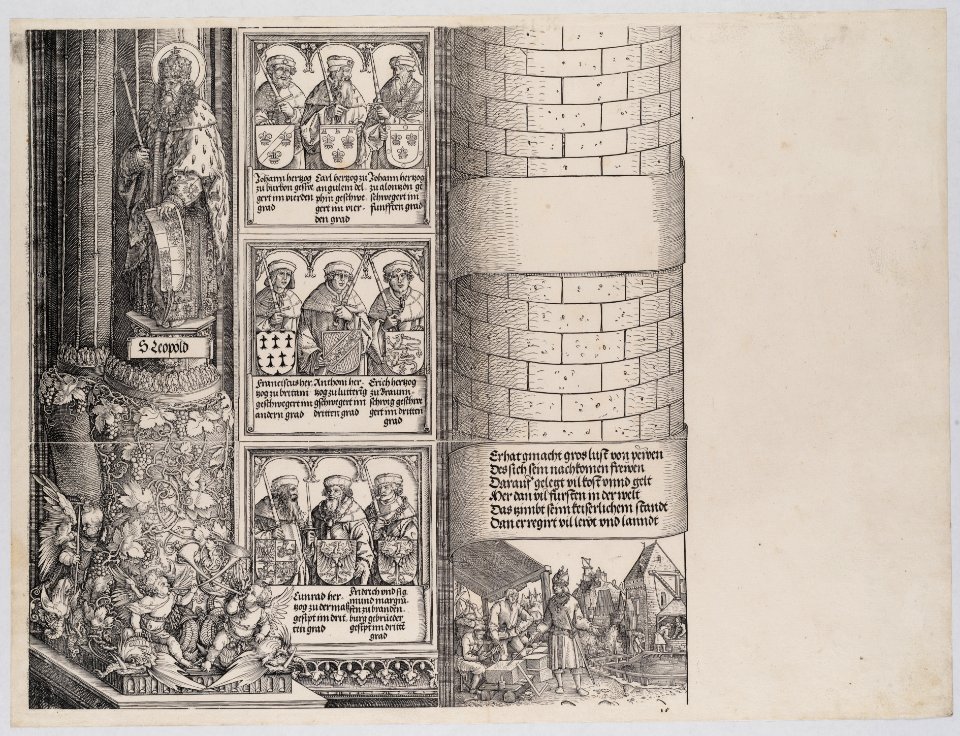 S Leopold
Johann hertzog
zu burbon geschwe
gert im vierden
grad
Carl hertzog zu
angulem del
phin geschwe
gert im vier-
den grad
Johann hertzog
zu alonzon ge
schwegert im
funfften grad
Franciscus her
zog zu britani
geschwegert im
andern grad
Anthoni her-
zog zu luttrig
gschwegert im
dritten grad
Erich hertzog
zu Braunn-
schweig geschwe
gert im dritten
grad
Cunrad her-
tzog zu der maß
gesipt im drit
ten grad
Fridrich und sig
mund margra
fen zu branden
burg gebrüeder
gesipt im dritte
grad
Er hat gmacht gros lust von pewen
Des sich sein nachkomen frewen
Darauf gelegt vil kost vnnd gelt
Mer dan vil fursten in der welt
Das zimbt seim keiserlichem standt
Dan er regirt vil lewt vnd lanndt